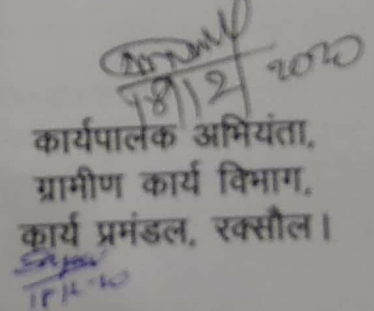 18/12/2020
कार्यपालक अभियंता,
ग्रामीण कार्य विभाग,
कार्य प्रमंडल, रक्सौल।